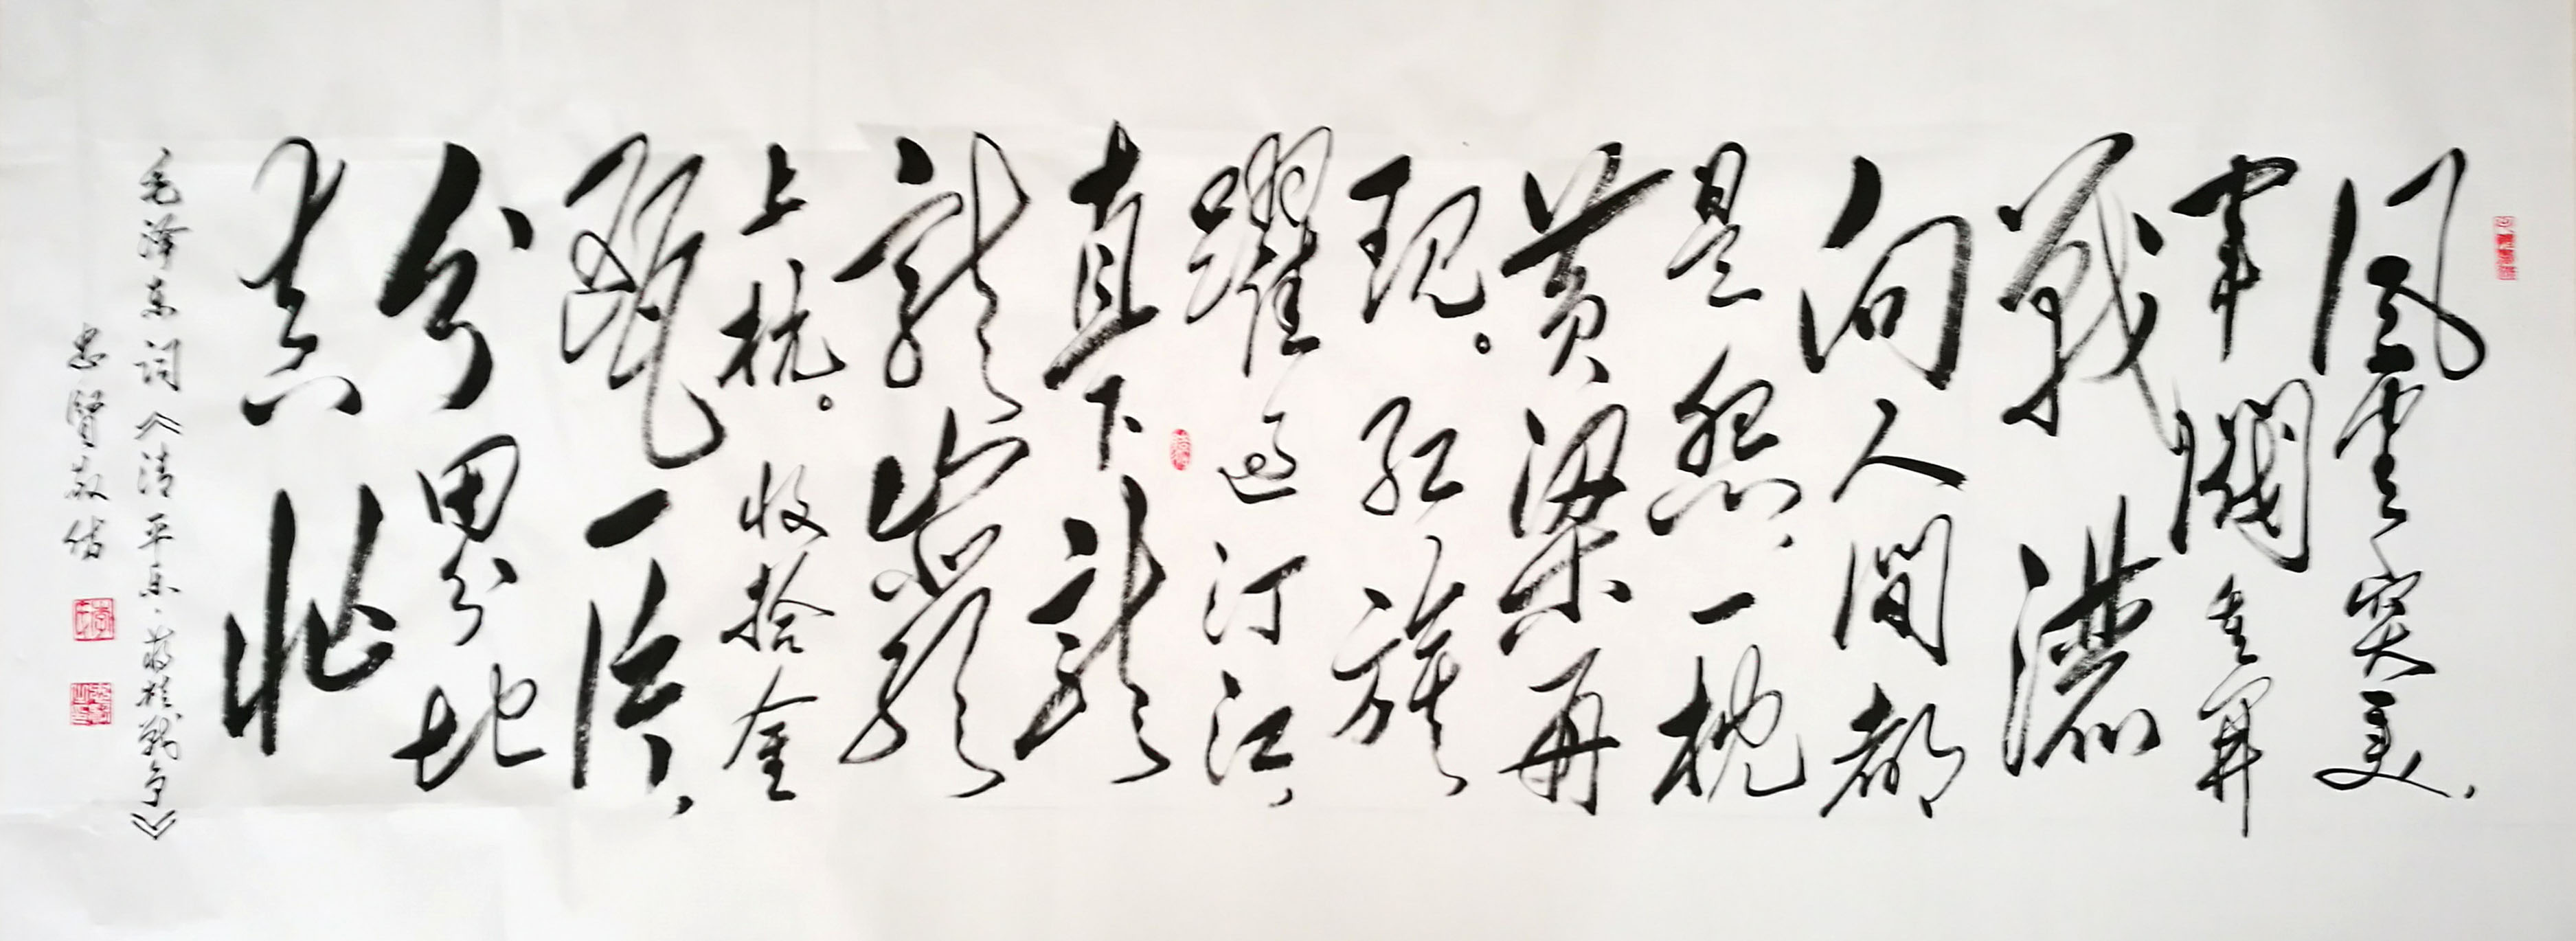 風雲突变,
軍閥重開
戰灑
向人间都
是怨,一枕
黄粱再
现。红旗
躍过汀江,
直下龍
龍巖
上杭。收拾金
甌一片,
分田分地
真忙
毛泽东词《清平乐·蒋桂战争》
忠贤敬